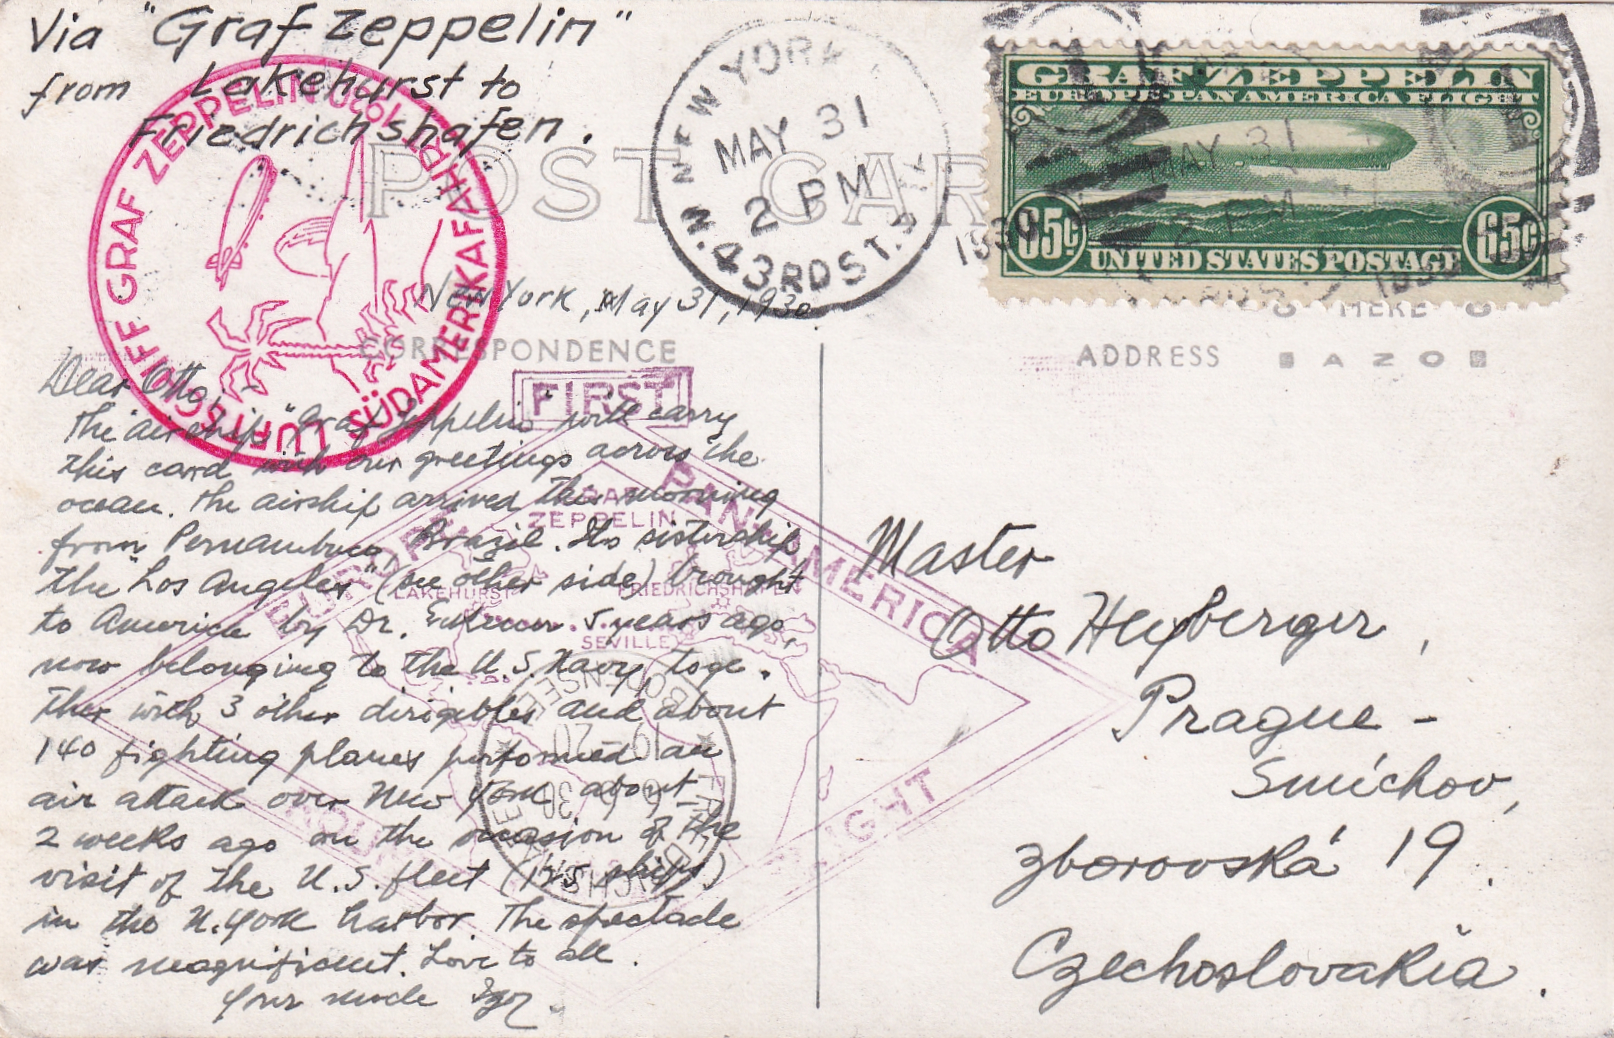 Via "Graf Zeppelin"
from Lakehurst to
Friedrichshafen.
LUFTSCHIFF GRAF ZEPPELIN 1930
SÜDAMERIKAFAHRT
POST CARD
NEW YORK, N.Y.
MAY 31
2 PM
1930
W. 43RD ST. STA.
GRAF ZEPPELIN
EUROPE PAN-AMERICA FLIGHT
MAY 31
2 PM
1930
65¢ 65¢
UNITED STATES POSTAGE
HERE
New York, May 31, 1930
CORRESPONDENCE
ADDRESS
AZO
FIRST
EUROPE PAN-AMERICA
ROUND FLIGHT
GRAF
ZEPPELIN
LAKEHURST
FRIEDRICHSHAFEN
SEVILLE
FRIEDRICHSHAFEN
(BODENSEE)
6.6.30
19-20
Dear Otto, –
The airship "Graf Zeppelin" will carry
this card with our greetings across the
ocean. The airship arrived this morning
from Pernambuco, Brazil. Its sistership
the "Los Angeles" (see other side) brought
to America by Dr. Eckener 5 years ago,
now belonging to the U.S. Navy, toge-
ther with 3 other dirigibles and about
140 fighting planes performed an
air attack over New York about
2 weeks ago on the occasion of the
visit of the U.S. fleet (125 ships)
in the N. York harbor. The spectacle
was magnificent. Love to all.
Your uncle
Master
Otto Heyberger,
Prague –
Smíchov,
Zborovská 19.
Czechoslovakia.